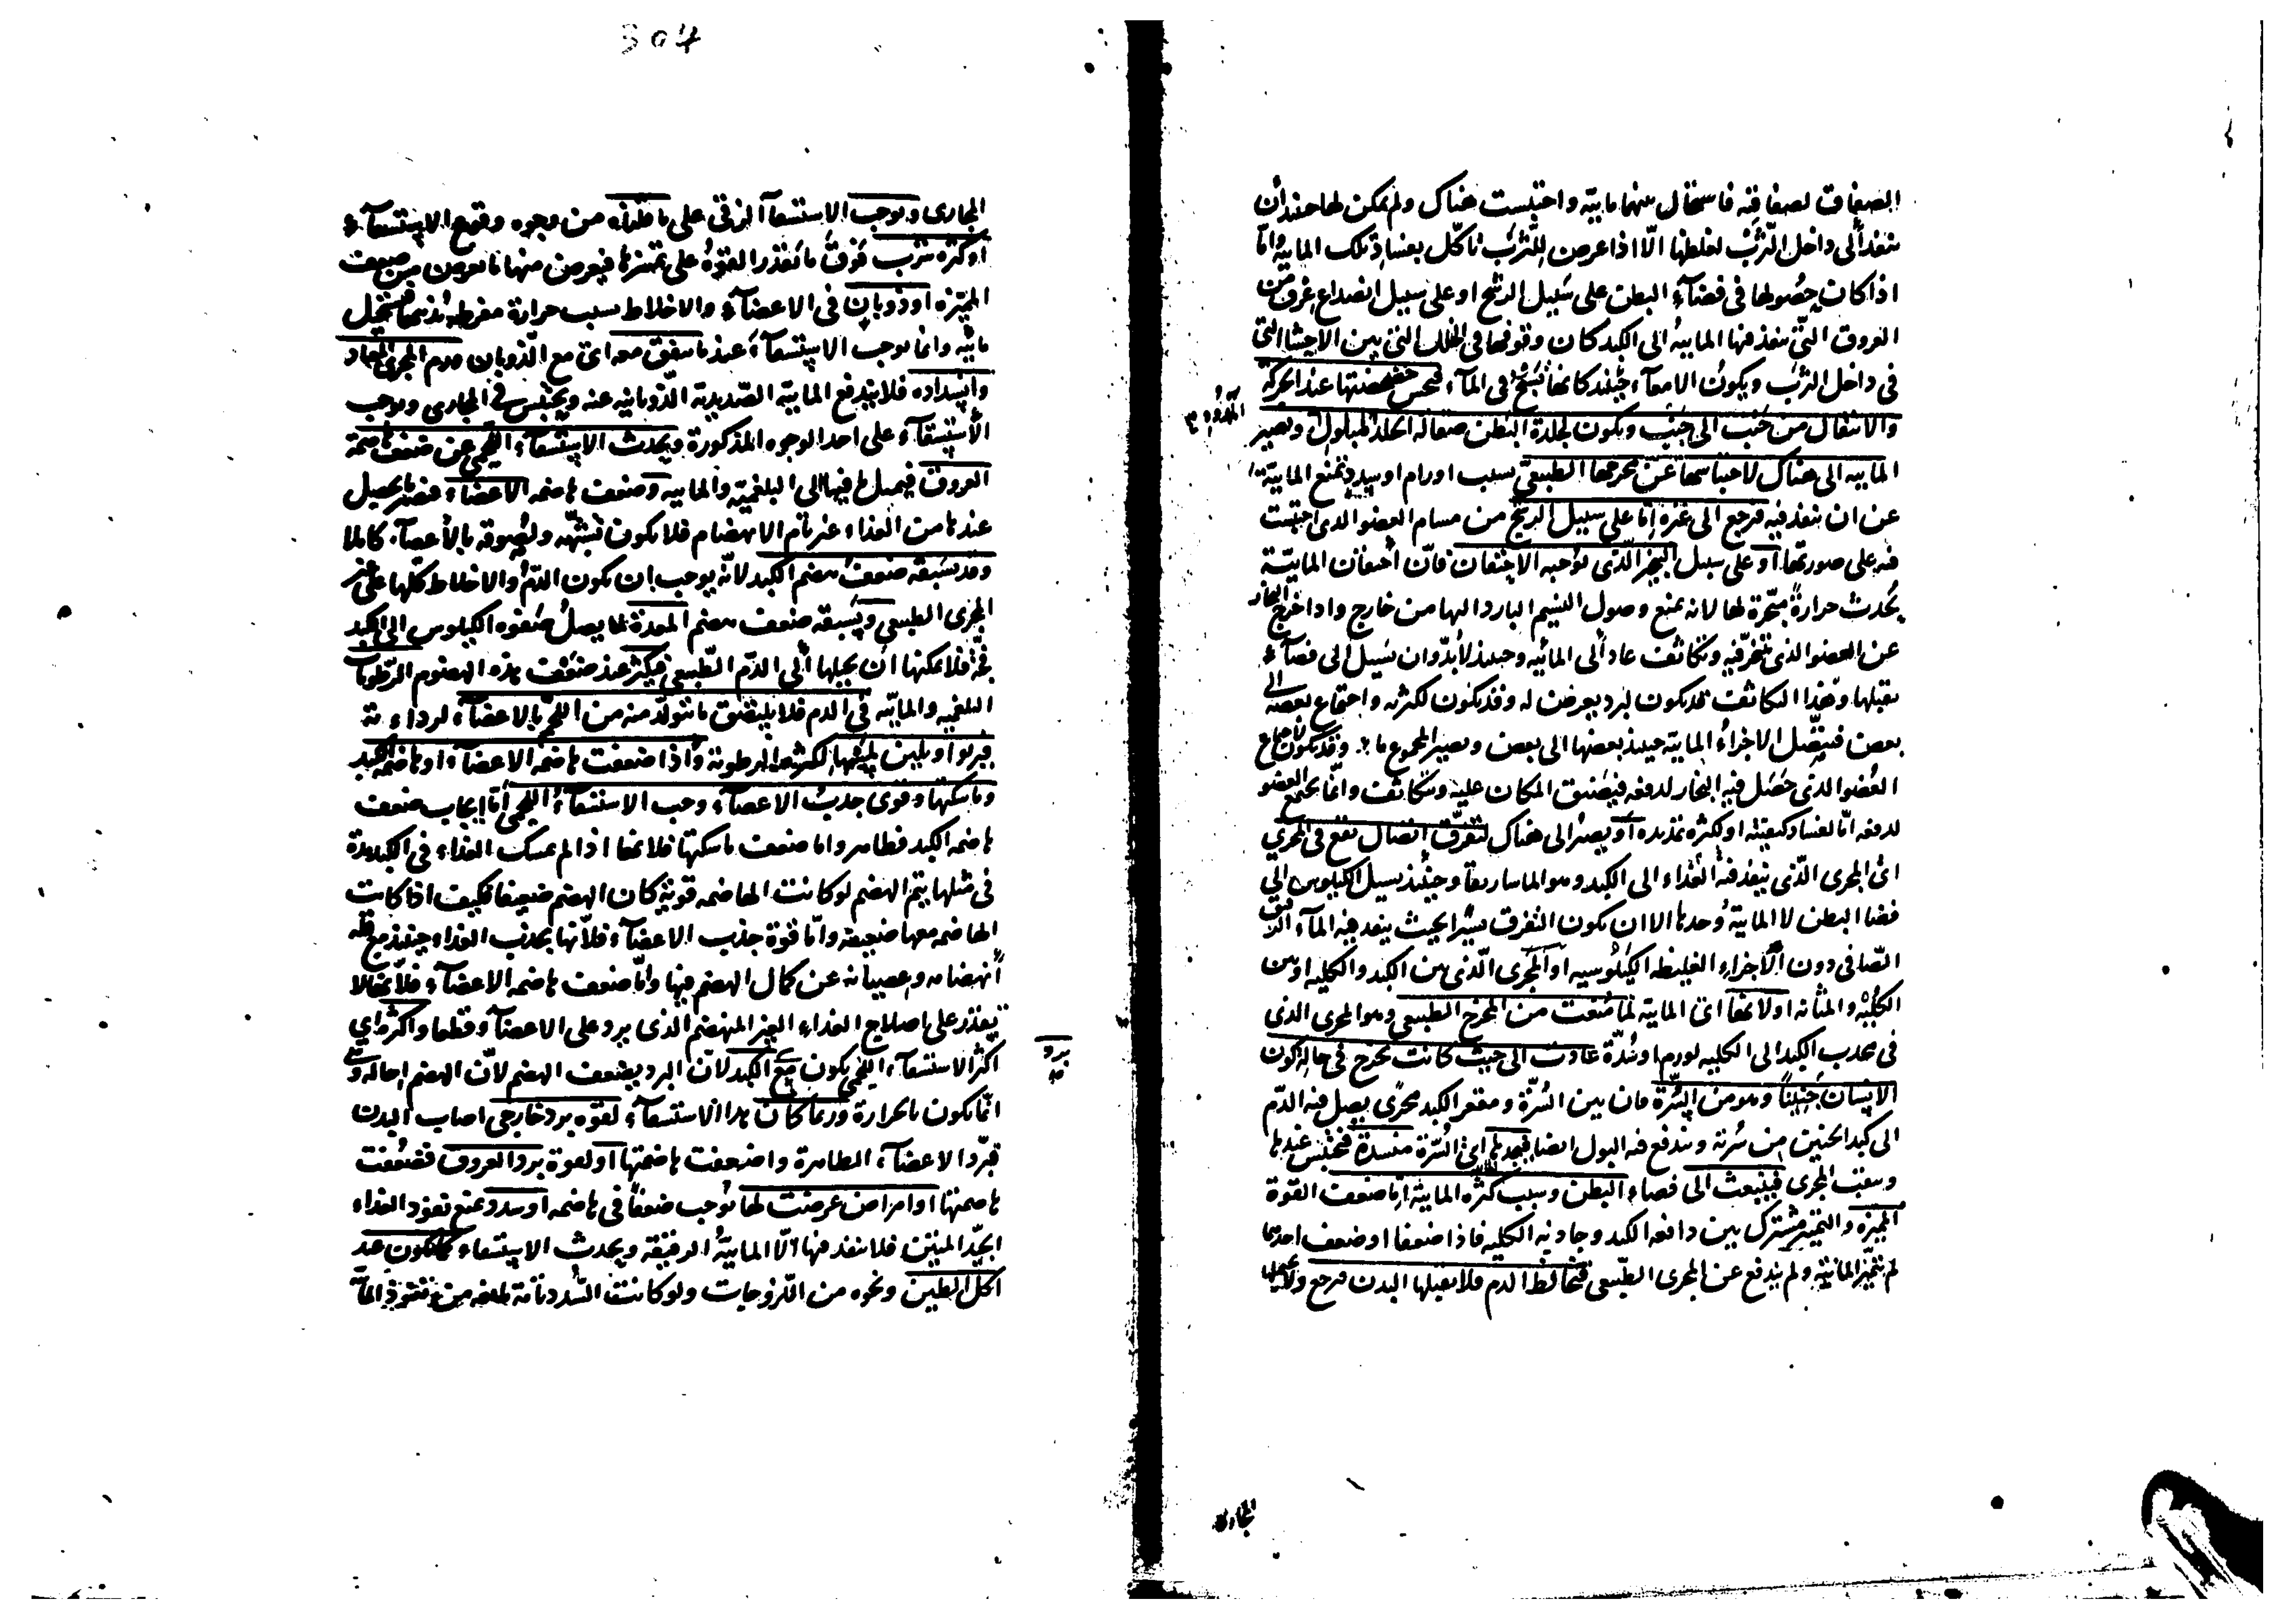 الصفاق لصفاقته فاستحال منها مائية واحتبست هناك ولم يمكن لها حينئذ أن
تنفذ إلى داخل الثرب لغلظها الا اذا عرض للثرب تأكل بفساد تلك المائية واما
اذا كان حصولها في فضاء البطن على سبيل الرشح او على سبيل انصداع عرق من
العروق التي تنفذ فيها المائية الى الكبد كان وقوفها في الخلل التي بين الاحشا التي
في داخل الثرب ويكون الامعاء حينئذ كانها تسبح في الماء فتحس خضخضتها عند الحركة
والانتقال من جنب الى جنب ويكون لجلدة البطن صقالة الجلد المبلول وتصير
المائية الى هناك لاحتباسها عن مخرجها الطبيعي بسبب اورام او سدد تمنع المائية
عن ان تنفذ فيه فترجع الى غيره اما على سبيل الرشح من مسام العضو الذي احتبست
فيه على صورتها او على سبيل البخر الذي توجبه الاحتقان فان احتقان المائية
يحدث حرارة مبخرة لها لانه يمنع وصول النسيم البارد اليها من خارج واذا خرج البخار
عن العضو الذي تبخر فيه وتكاثف عاد إلى المائية وحينئذ لا بد وان تسيل الى فضاء
يقبلها وهذا التكاثف قد يكون لبرد يعرض له وقد يكون لكثرته واجتماع بعضه الى
بعض فيتصل الاجزاء المائية حينئذ بعضها الى بعض ويصير المجموع ماء وقد يكون لاجتماع
العضو الذي حصل فيه البخار لدفعه فيضيق المكان عليه ويتكاثف وانما يجتمع العضو
لدفعه اما لفساد كيفيته او لكثرة تمديده او يصير الى هناك لتفرق اتصال يقع في المجرى
اى المجرى الذي ينفذ فيه الغذاء الى الكبد وهو الماساريقا وحينئذ يسيل الكيلوس الى
فضا البطن لا المائية وحدها الا ان يكون التفرق يسيرا بحيث ينفذ فيه الماء الرقيق
الصافي دون الاجزاء الغليظه الكيلوسيه او المجرى الذي بين الكبد والكليه او بين
الكلية والمثانه اولا نها اى المائية لما منعت من المخرج الطبيعي وهو المجرى الذي
في محدب الكبد الى الكليه لورم او سدة عادت الى حيث كانت تخرج في حالة كون
الانسان جنينا وهو من السرة فان بين السرة ومقعر الكبد مجرى يصل فيه الدم
الى كبد الجنين من سرته ويندفع فيه البول ايضا فيجدها اى السرة منسدة فتحتبس عندها
وينفتق المجرى فينبعث الى فضاء البطن وسبب كثرة المائية اما ضعف القوة
المميزه والتمييز مشترك بين دافعة الكبد وجاذبه الكليه فاذا ضعفا او ضعف احدهما
لم تتميز المائية ولم يندفع عن المجرى الطبيعي فتخالط الدم فلا يقبلها البدن فترجع ولا
المجارى
المجارى ويوجب الاستسقاء الزقي على ما قلناه من وجوه وقوع الاستسقاء
او كثرة شرب فوق ما تقدر القوة على تمييزها فيعرض منها ما يعرض من ضعف
المميزه او ذوبان في الاعضاء والاخلاط بسبب حرارة مفرطه تذيبها فتستحيل
مائيه وانما يوجب الاستسقاء عند ما يتفق معه اى مع الذوبان ورم المجرى المعتاد
وانسداده فلا يندفع المائية الصديدية الذوبانيه عنه ويحتبس في المجارى ويوجب
الاستسقاء على احد الوجوه المذكورة ويحدث الاستسقاء اللحمي عن ضعف هاضمة
العروق فيميل ما فيها الى البلغمية والمائيه وضعف هاضمة الاعضاء فيصير ما يحصل
عندها من الغذاء غير تام الانهضام فلا يكون تشبهه ولصوقه بالاعضاء كاملا
وقد تسبقه ضعف هضم الكبد لانه يوجب ان يكون الدم والاخلاط كلها على غير
المجرى الطبيعي ويسبقه ضعف هضم المعدة لما يصل صفوة الكيلوس الى الكبد
فجة فلا يمكنها ان يحيلها الى الدم الطبيعي فيكثر عند ضعف هذه الهضوم الرطوبات
البلغمية والمائيه في الدم فلا يلتصق ما يتولد منه من اللحم بالاعضاء لرداءته
فيربو او يلين لكثرة الرطوبة واذا ضعفت هاضمة الاعضاء او هاضمة الكبد
وماسكتها وقوى جذب الاعضاء وجب الاستسقاء اللحمي اما ايجاب ضعف
هاضمة الكبد فظاهر واما ضعف ماسكتها فلانها اذا لم تمسك الغذاء في الكبد مدة
في مثلها يتم الهضم لو كانت الهاضمه قوية كان الهضم ضعيفا فكيف اذا كانت
الهاضمه معها ضعيفة واما قوة جذب الاعضاء فلانها تجذب الغذاء حينئذ مع قلة
انهضامه وعصيانه عن كمال الهضم فيها واما ضعف هاضمة الاعضاء فلانها لا
تقدر على اصلاح الغذاء الغير المنهضم الذي يرد على الاعضاء قطعا واكثره اي
اكثر الاستسقاء اللحمي يكون مع برد الكبد لان البرد يضعف الهضم لان الهضم احاله
انما يكون بالحرارة وربما كان هذا الاستسقاء لقوة برد خارجي اصاب البدن
فبرد الاعضاء الظاهرة واضعفت هاضمتها او لقوة برد العروق فضعفت
هاضمتها او امراض عرضت لها توجب ضعفا في هاضمه او سدد تمنع نفوذ الغذاء
الجيد المتين فلا ينفذ فيها الا المائية الرقيقه ويحدث الاستسقاء كما يكون عند
اكل الطين ونحوه من اللزوجات ولو كانت السدد تامة من نفوذ